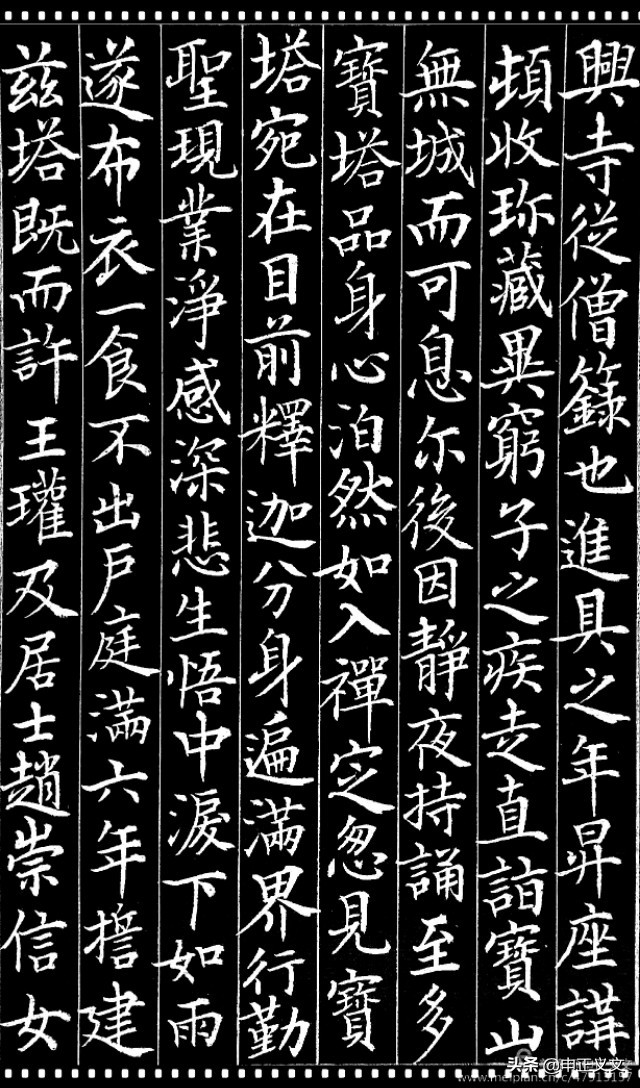 興寺從僧籙也進具之年昇座講
頓收珎藏異窮子之疾走直詣寶山
無城而可息尔後因靜夜持誦至多
寶塔品身心泊然如入禪定忽見寶
塔宛在目前釋迦分身遍滿界行勤
聖現業淨感深悲生悟中淚下如雨
遂布衣一食不出戶庭滿六年建
茲塔既而許王瓘及居士趙崇信女
头条 @中正义文